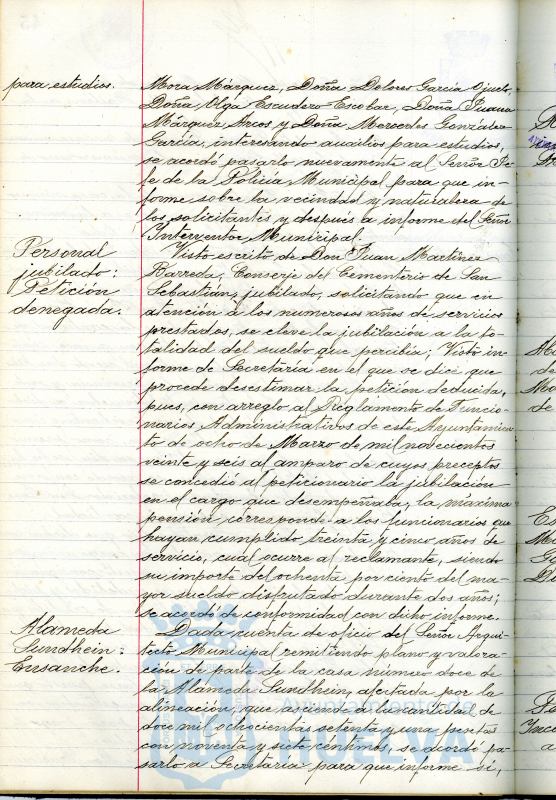 para estudios.
Mora Márquez, Doña Dolores García Ojuelo,
Doña Olga Escudero Escobar, Doña Juana
Márquez Arcos y Doña Mercedes González
García, interesando auxilios para estudios,
se acordó pasarlo nuevamente al Señor Je-
fe de la Policía Municipal para que in-
forme sobre la vecindad y naturaleza de
los solicitantes y después a informe del Señor
Interventor Municipal.
Personal
jubilado:
Petición
denegada.
Visto escrito de Don Juan Martínez
Barreda, Conserje del Cementerio de San
Sebastián, jubilado, solicitando que en
atención a los numerosos años de servicios
prestados, se eleve la jubilación a la to-
talidad del sueldo que percibía; Visto in-
forme de Secretaría en el que se dice que
procede desestimar la petición deducida,
pues, con arreglo al Reglamento de Funcio-
narios Administrativos de este Ayuntamien-
to de ocho de Marzo de mil novecientos
veinte y seis al amparo de cuyos preceptos
se concedió al peticionario la jubilación
en el cargo que desempeñaba, la máxima
pensión corresponde a los funcionarios que
hayan cumplido treinta y cinco años de
servicio, cual ocurre al reclamante, siendo
su importe del ochenta por ciento del ma-
yor sueldo disfrutado durante dos años;
se acordó de conformidad con dicho informe.
Alameda
Sundhein:
Ensanche.
Dada cuenta de oficio del Señor Arqui-
tecto Municipal remitiendo plano y valora-
ción de parte de la casa número doce de
la Alameda Sundhein, afectada por la
alineación, que asciende a la cantidad de
doce mil ochocientas setenta y una pesetas
con noventa y siete céntimos, se acordó pa-
sarlo a Secretaría para que informe si,